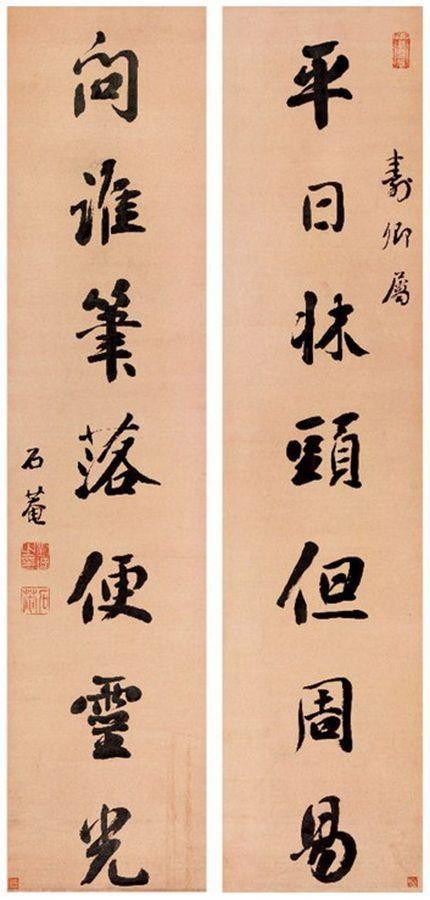 壽卿屬
平日牀頭但周易
問誰筆落便靈光
石菴